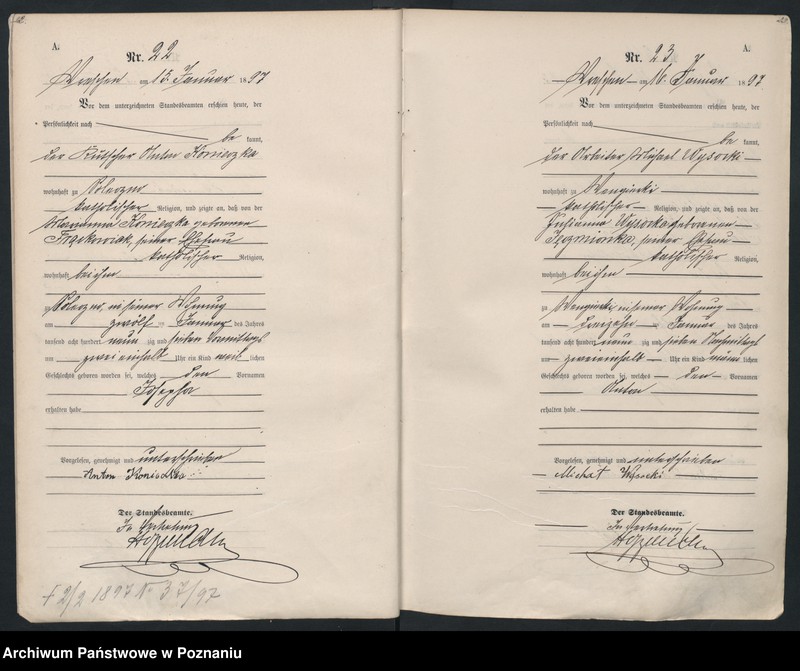 A.
Nr. 22
Wreschen am 13. Januar 1897
Vor dem unterzeichneten Standesbeamten erschien heute, der
Persönlichkeit nach
be kannt,
der Kutscher Anton Konieczka
wohnhaft zu
katholischer Religion, und zeigte an, daß von der
Marianna Konieczka geborenen
seiner Ehefrau
katholischer Religion,
wohnhaft bei ihm
zu in seiner Wohnung
am zwölf ten Januar des Jahres
tausend acht hundert neun zig und sieben Vormittags
um zwei einhalb Uhr ein Kind weib lichen
Geschlechts geboren worden sei, welches den Vornamen
Josepha
erhalten habe
Vorgelesen, genehmigt und unterschrieben
Anton Konieczka
Der Standesbeamte.
In Vertretung
+ 2/2 1897 N 37/97
A.
Nr. 23
Wreschen am 16. Januar 1897
Vor dem unterzeichneten Standesbeamten erschien heute, der
Persönlichkeit nach
be kannt,
der Arbeiter Michael Wysocki
wohnhaft zu Wengierki
katholischer Religion, und zeigte an, daß von der
Wysocka geborenen
seiner Ehefrau
katholischer Religion,
wohnhaft bei ihm
zu Wengierki in seiner Wohnung
am ten Januar des Jahres
tausend acht hundert neun zig und sieben Nachmittags
um zwei einhalb Uhr ein Kind männ lichen
Geschlechts geboren worden sei, welches den Vornamen
Anton
erhalten habe
Vorgelesen, genehmigt und unterschrieben
Michał Wysocki
Der Standesbeamte.
In Vertretung
Archiwum Państwowe w Poznaniu